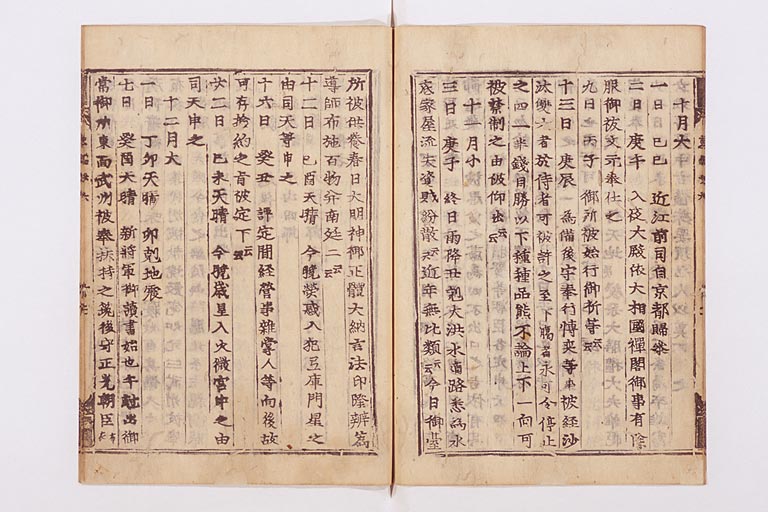 十月大
一日 己巳 近江前司自京都歸參
二日 庚午 入夜大殿依大相國禪閤御事有除
服御祓文元奉仕之
九日 丙子 御所被始行御祈等云云
十三日 庚辰 爲備後守奉行博奕等事被経沙
汰雙六者於侍者可被許之至下﨟者永可令停止
之四一半錢目勝以下種種品態不論上下一向可
被禁制之由被仰出云云
十一月小
三日 庚子 終日雨降丑剋大洪水道路悉爲水
底家屋流失資財紛散云云近年無比類云云今日御堂
所被供養春日大明神御正體大納言法印隆辨爲
導師布施百物分南廷二云云
十二日 己酉天晴 今曉熒惑入犯互庫門星之
由司天等申之
十六日 癸丑 評定間経營事雜掌人等向後故
可存於約之旨被定下云云
廿二日 己未天晴 今曉歳星入大微宮中之由
司天申之
十二月大
一日 丁卯天晴 卯剋地震
七日 癸酉天晴 新將軍御讀書始也午尅出御
當御所東面武州被奉扶持之筑後守正光朝臣